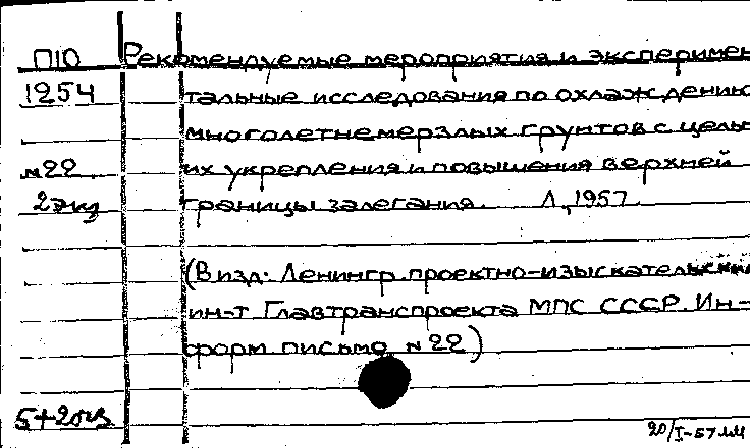 П10 Рекомендуемые мероприятия и эксперимен-
1254 тальные исследования по охлаждению
многолетнемерзлых грунтов с целью
№22 их укрепления и повышения верхней
2 экз границы залегания. Л., 1957.
(В изд: Ленингр. проектно-изыскательский
ин-т Главтранспроекта МПС СССР. Ин-
форм. письмо №22)
5+2экз
20/I-57